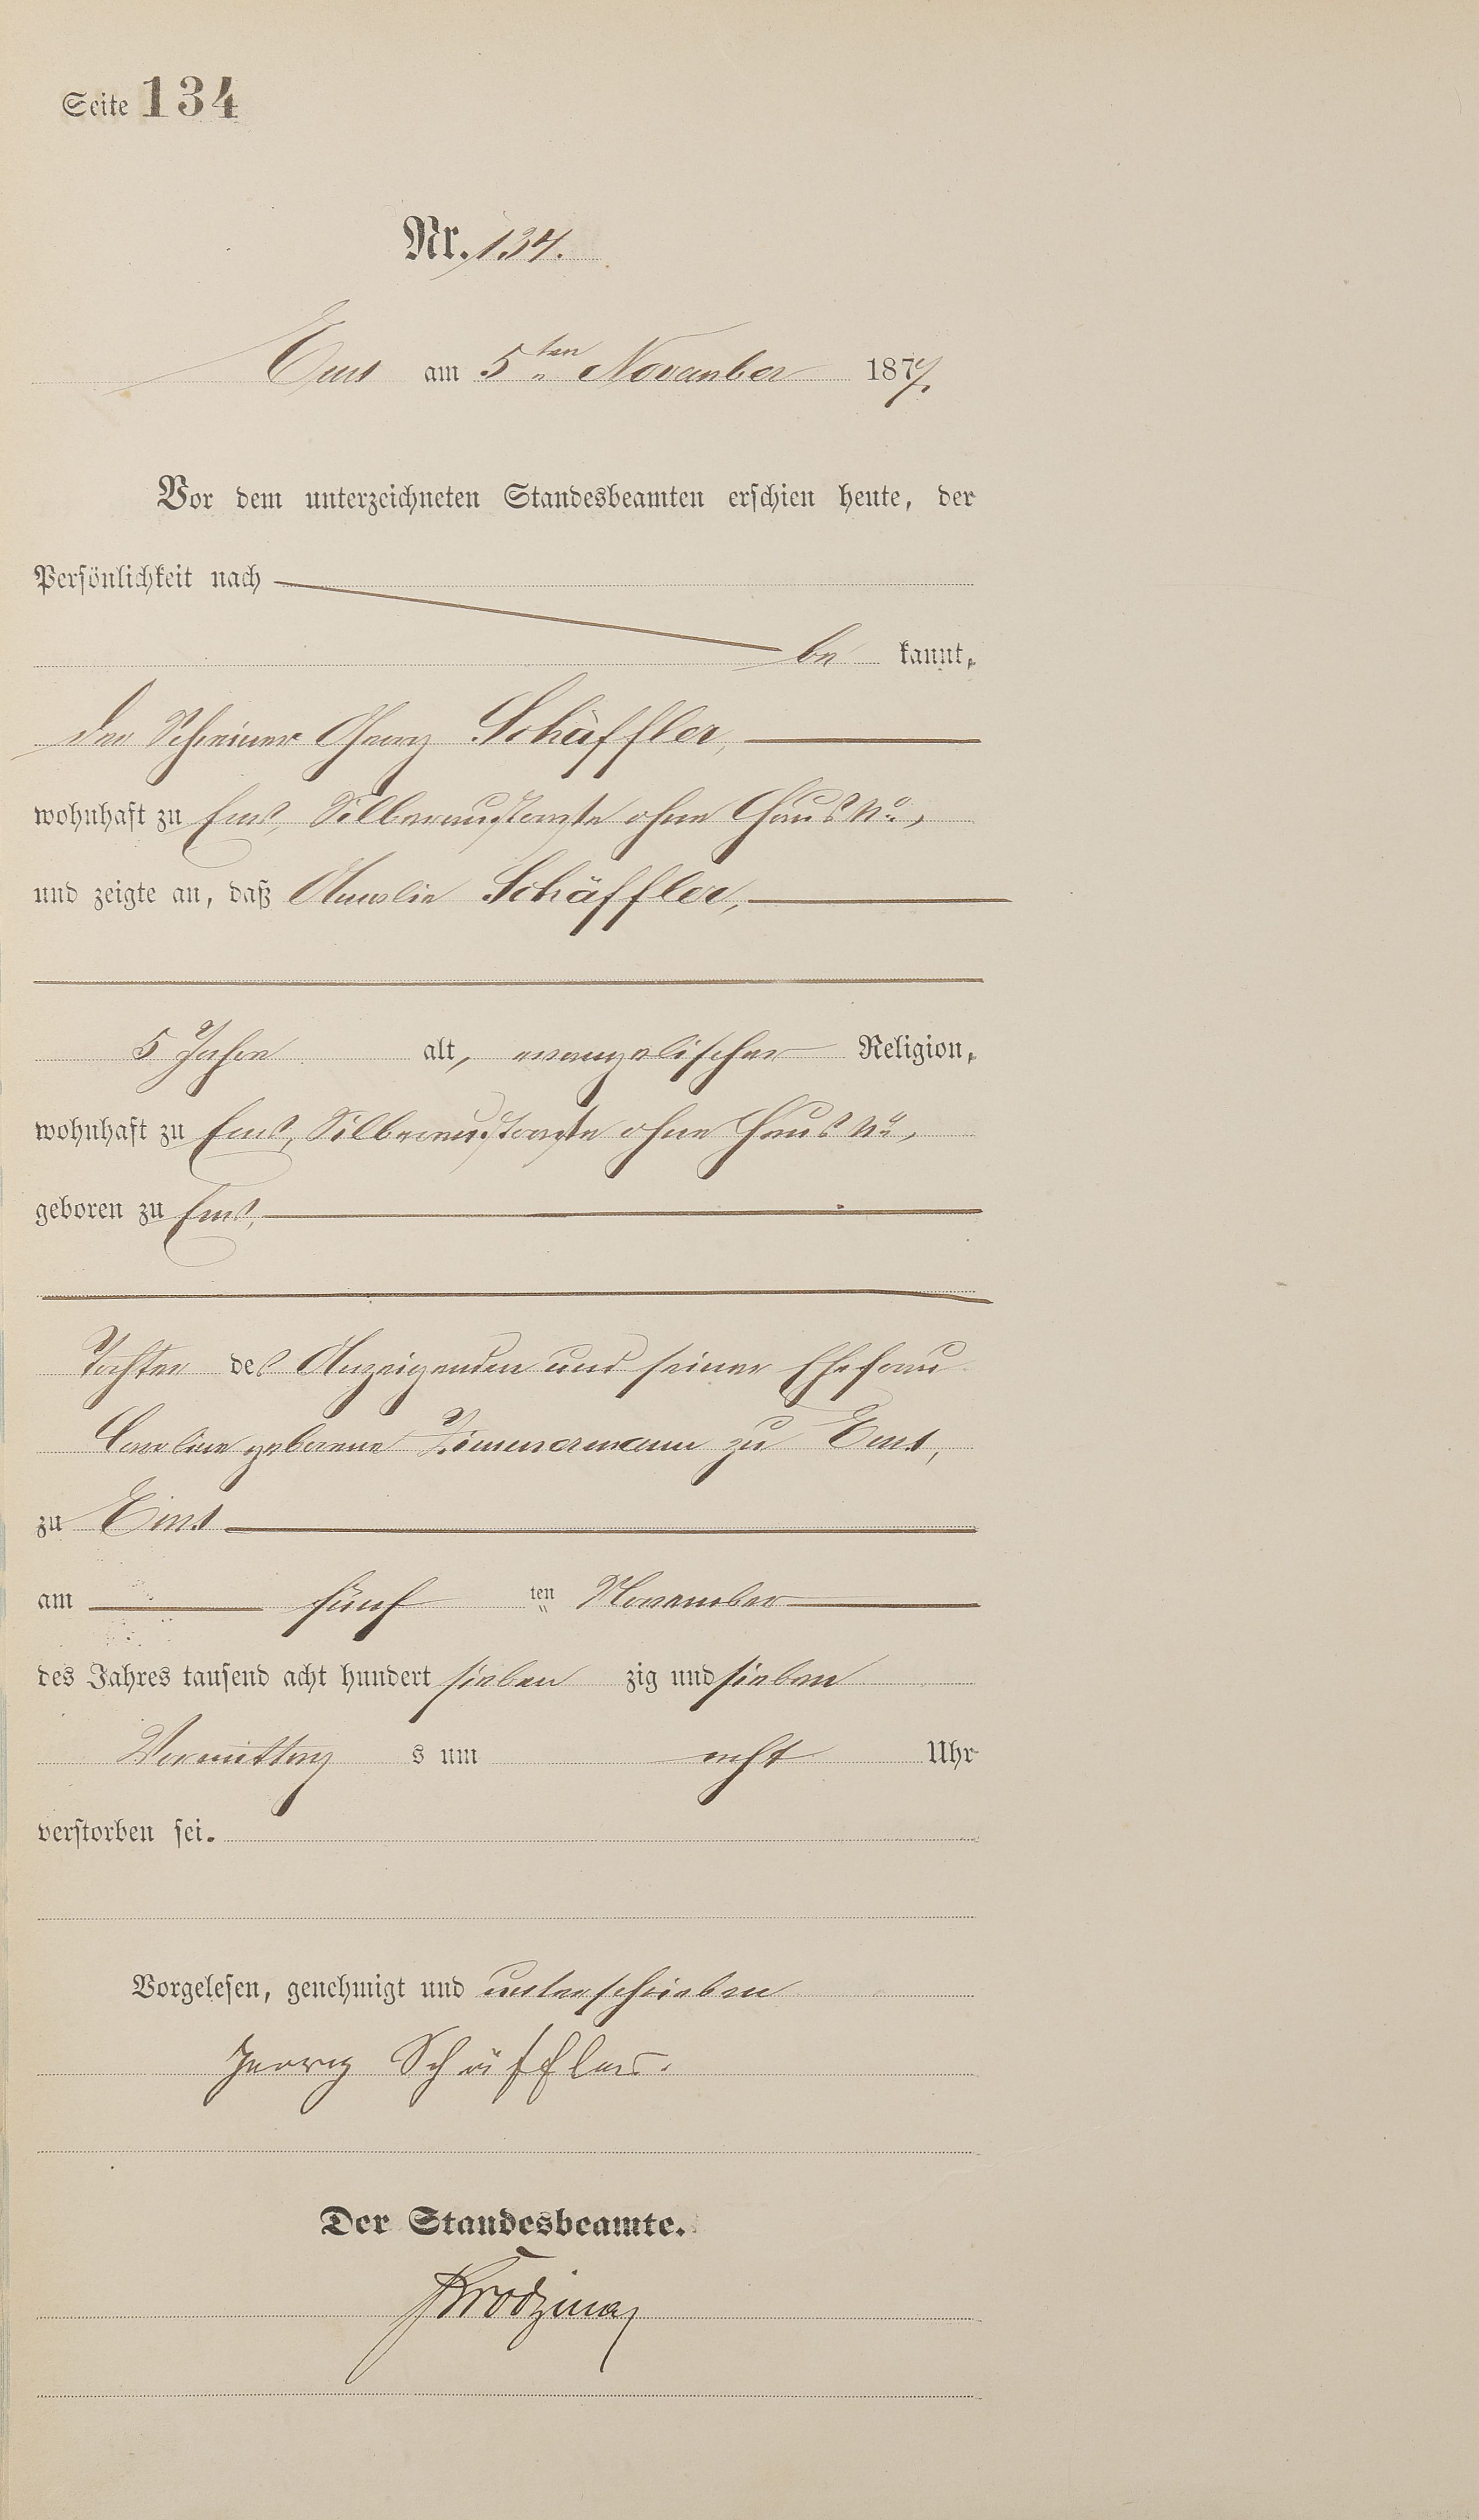 Seite 134
Nr. 134.
Ems am 5ten November 1877.
Vor dem unterzeichneten Standesbeamten erschien heute, der
Persönlichkeit nach
be kannt,
der Schreiner Georg Schäffler,
wohnhaft zu Ems, Silberaustraße ohne Haus No,
und zeigte an, daß Amalie Schäffler,
5 Jahre alt, evangelischer Religion,
wohnhaft zu Ems, Silberaustraße ohne Haus No,
geboren zu Ems,
Tochter des Anzeigenden und seiner Ehefrau
Caroline geborene Zimmermann zu Ems,
zu Ems
am fünf ten November
des Jahres tausend acht hundert sieben zig und sieben
Vormittag s um acht Uhr
verstorben sei.
Vorgelesen, genehmigt und unterschrieben
Georg Schäffler.
Der Standesbeamte.